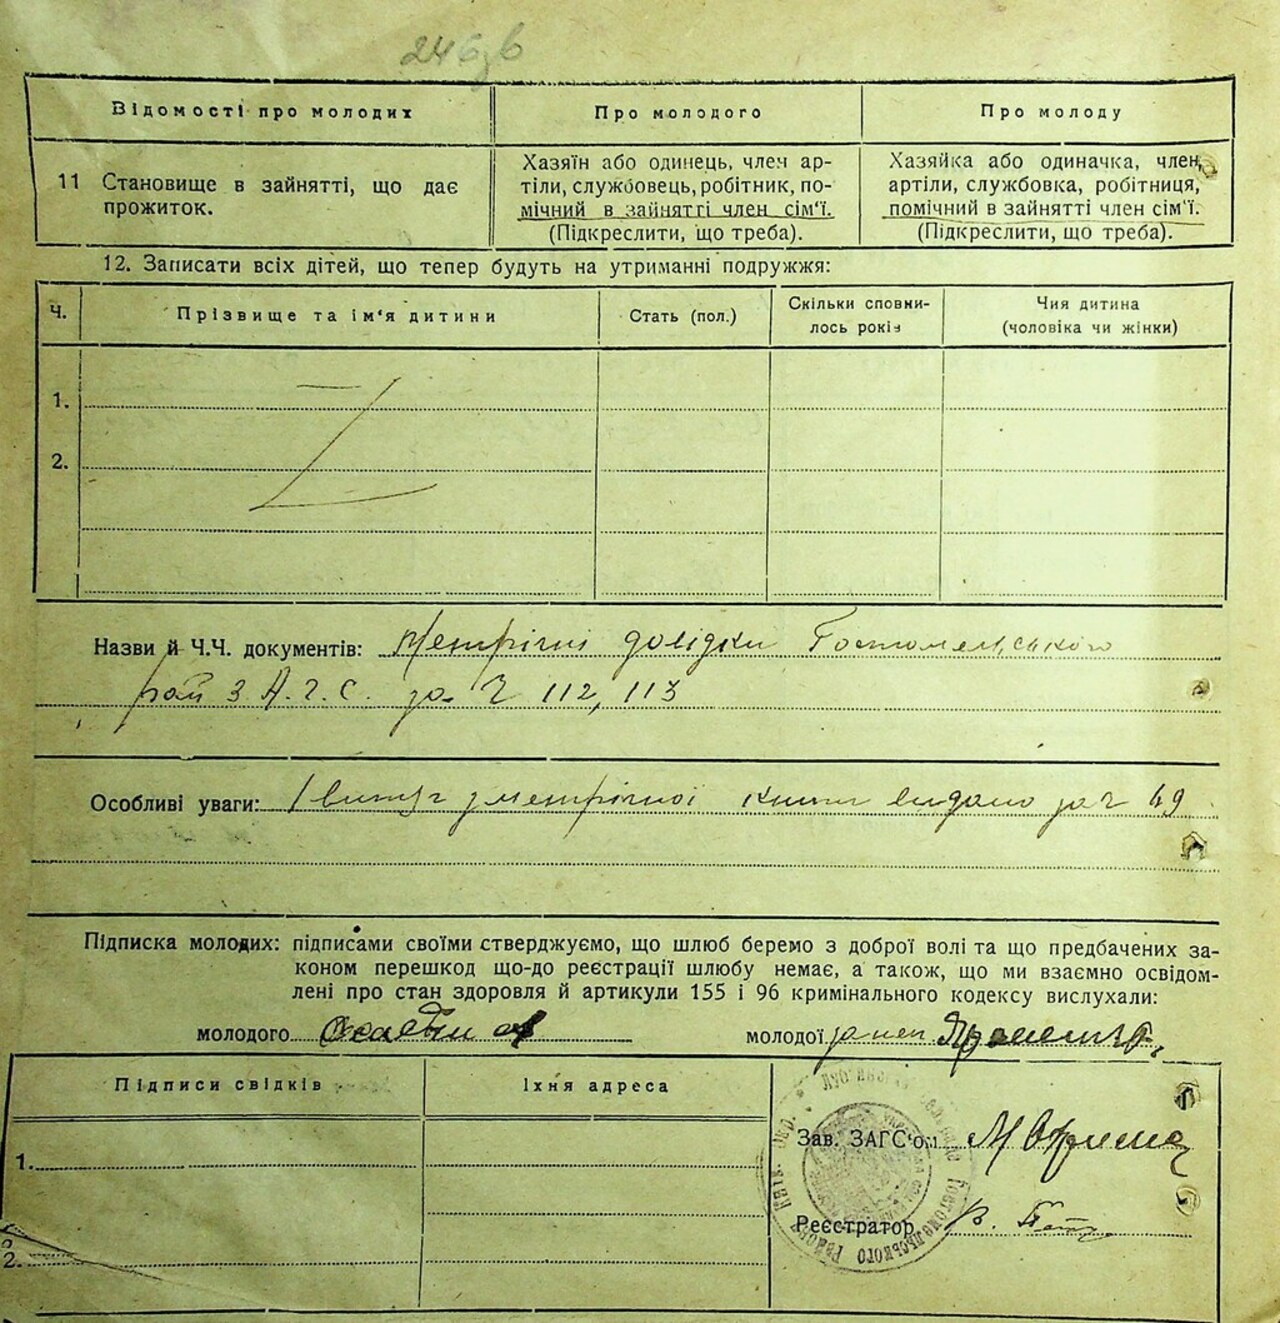 Відомості про молодих
Про молодого
Про молоду
11 Становище в зайнятті, що дає
прожиток.
Хазяїн або одинець, член ар-
тіли, службовець, робітник, по-
мічний в зайнятті член сім'ї.
(Підкреслити, що треба).
Хазяйка або одиначка, член
артіли, службовка, робітниця,
помічний в зайнятті член сім'ї.
(Підкреслити, що треба).
12. Записати всіх дітей, що тепер будуть на утриманні подружжя:
Ч.
Прізвище та ім'я дитини
Стать (пол.)
Скільки сповни-
лось років
Чия дитина
(чоловіка чи жінки)
1.
2.
Назви й Ч.Ч. документів: Метрічні довідки Гостомельського
рай З.А.Г.С. за Ч 112, 113
Особливі уваги: витяг з метрічної книги видано за Ч 49
Підписка молодих: підписами своїми стверджуємо, що шлюб беремо з доброї волі та що предбачених за-
коном перешкод що-до реєстрації шлюбу немає, а також, що ми взаємно освідом-
лені про стан здоровля й артикули 155 і 96 кримінального кодексу вислухали:
молодого
молодої
Підписи свідків
Їхня адреса
1.
2.
Зав. ЗАГС'ом
Реєстратор В.